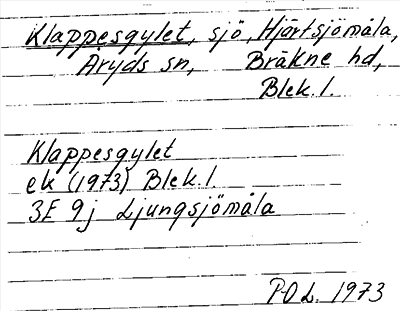 Klappesgylet, sjö, Hjortsjömåla,
Åryds sn, Bräkne hd,
Blek. l.
Klappesgylet
ek (1973) Blek. l.
3F 9j Ljungsjömåla
P-O L. 1973